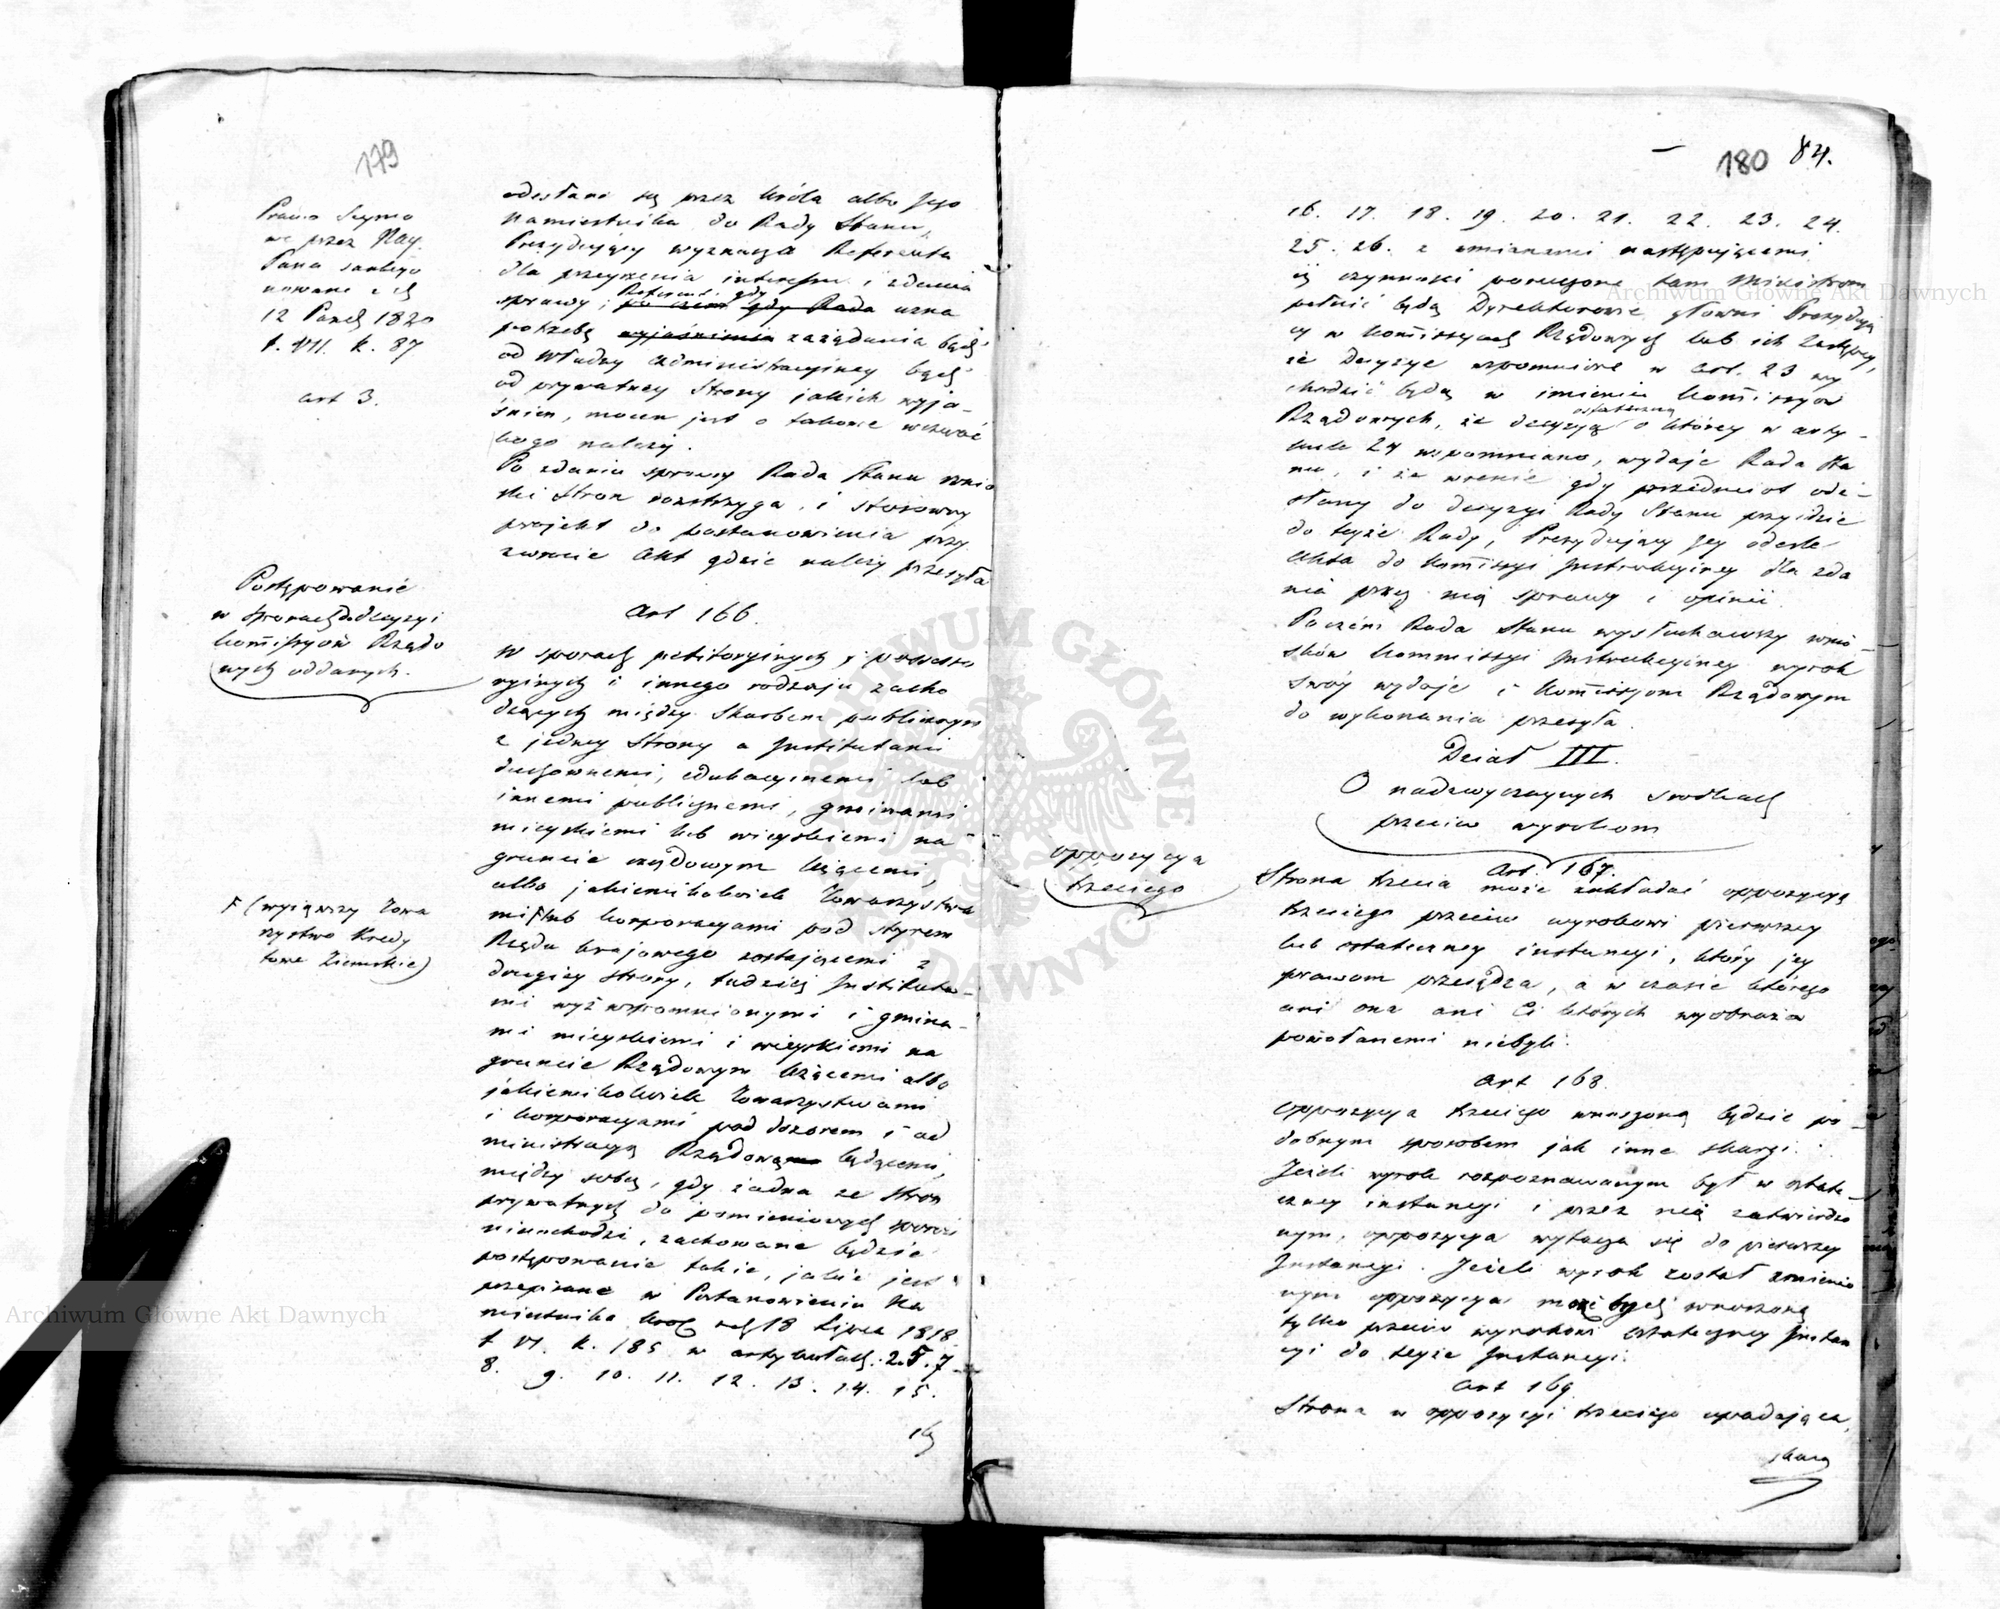 179
Prawo Seymo
we przez Nay.
Pana sankcyo
nowane z d.
12 Paźdz 1820
t. VII. k. 87
art 3.
odesłani są przez Króla albo Jego
Namiestnika do Rady Stanu,
Prezydujący wyznacza Referenta
dla przeyrzenia interessu i zdania
Referent gdy
sprawy, po czem gdy Rada uzna
potrzebę wyjaśnienia zażądania bądź
od Władzy administracyiney bądź
od prywatney Strony jakich wyja-
śnień, mocen jest o takowe wezwać
kogo należy.
Po zdaniu sprawy Rada Stanu wnio
ski Stron rozstrzyga, i stosowny
projekt do postanowienia przy
zwrocie akt gdzie należy przesyła
Postępowanie
w sporach do decyzyi
Kommissyów Rządo
wych oddanych.
Art 166.
W sporach petitoryinych i possesso
ryinych i innego rodzaju zacho
dzących między Skarbem publicznym
z jedney Strony a Institutami
duchownemi, edukacyinemi lub
innemi publicznemi, gminami
mieyskiemi lub wieyskiemi na
gruncie rządowym leżącemi,
albo jakiemikolwiek Towarzystwa
F (wyiąwszy Towa
rzystwo Kredy
towe Ziemskie)
mi F lub korporacyami pod styrem
Rządu krajowego zostającemi z
drugiey strony, tudzież Instituta-
mi wyż wspomnionymi i gmina-
mi mieyskiemi i wieyskiemi na
gruncie Rządowym leżącemi albo
jakiemikolwiek Towarzystwami
i korporacyami pod dozorem i ad
ministracyą Rządową będącemi,
między sobą, gdy żadna ze stron
prywatnych do pomienionych sporów
niewchodzi, zachowane będzie
postępowanie takie, jakie jest
przepisane w Postanowieniu Na
miestnika Król. z d. 18 Lipca 1818
t VI. k. 185 w artykułach 2. 5. 7
8. 9. 10. 11. 12. 13. 14. 15.
16
180 84.
16. 17. 18. 19. 20. 21. 22. 23. 24.
25. 26. z zmianami następującemi
iż czynności poruczone tam Ministrom
pełnić będą Dyrektorowie główni Prezydują
cy w Kommissyach Rządowych lub ich Zastępcy,
że Decyzye wspomnione w art. 23 wy
chodzić będą w imieniu Kommissyów
ostateczną
Rządowych, że decyzyą o którey w arty-
kule 24 wspomniano, wydaje Rada Sta
nu, i że wrenie gdy przedmiot ode-
słany do decyzyi Rady Stanu przyidzie
do teyże Rady, Prezydujący jey odeśle
akta do Kommissyi Instrukcyiney dla zda
nia przez nią sprawy i opinii.
Poczém Rada Stanu wysłuchawszy wnio
sków Kommissyi Instrukcyiney wyrok
swóy wydaje i Kommissyom Rządowym
do wykonania przesyła.
Dział III.
O nadzwyczaynych srodkach
przeciw wyrokom
oppozycya
trzeciego
Art. 167.
Strona trzecia może zakładać oppozycyą
trzeciego przeciw wyrokowi pierwszey
lub ostateczney instancyi, który jey
prawom przesądza, a w czasie którego
ani ona ani Ci których wyobraża
powołanemi niebyli.
Art 168.
Oppozycya trzeciego wnoszoną będzie po
dobnym sposobem jak inne skargi.
Jeżeli wyrok rozpoznawanym był w ostate-
czney instancyi i przez nią zatwierdzo
nym, oppozycya wytacza się do pierwszey
Instancyi. Jeżeli wyrok został zmienio
nym oppozycya może bydź wnoszoną
tylko przeciw wyrokowi ostateczney Instan
cyi do teyże Instancyi.
Art 169.
Strona w oppozycyi trzeciego upadająca,
skazą
Archiwum Główne Akt Dawnych
Archiwum Główne Akt Dawnych
ARCHIWUM GŁÓWNE
AKT DAWNYCH